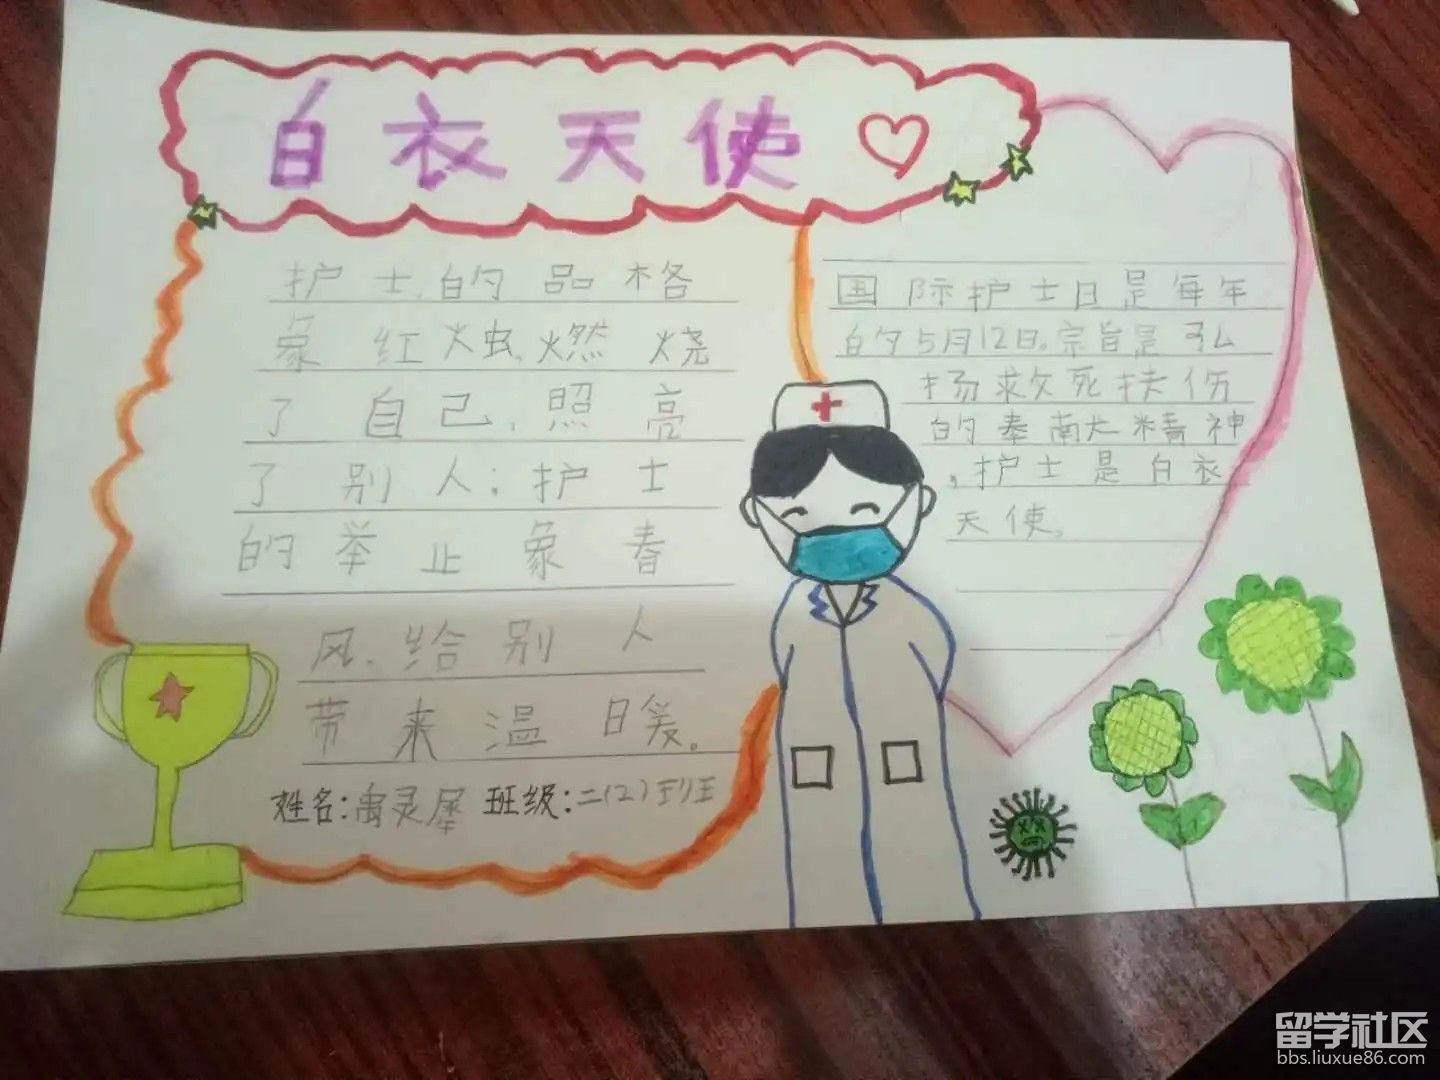 白衣天使
护士的品格
象红烛,燃烧
了自己,照亮
了别人;护士
的举止象春
风,给别人
带来温暖。
姓名:禹灵犀 班级:二(2)班
国际护士日是每年
的5月12日。宗旨是弘
扬救死扶伤
的奉献精神
,护士是白衣
天使。
留学社区
bbs.liuxue86.com